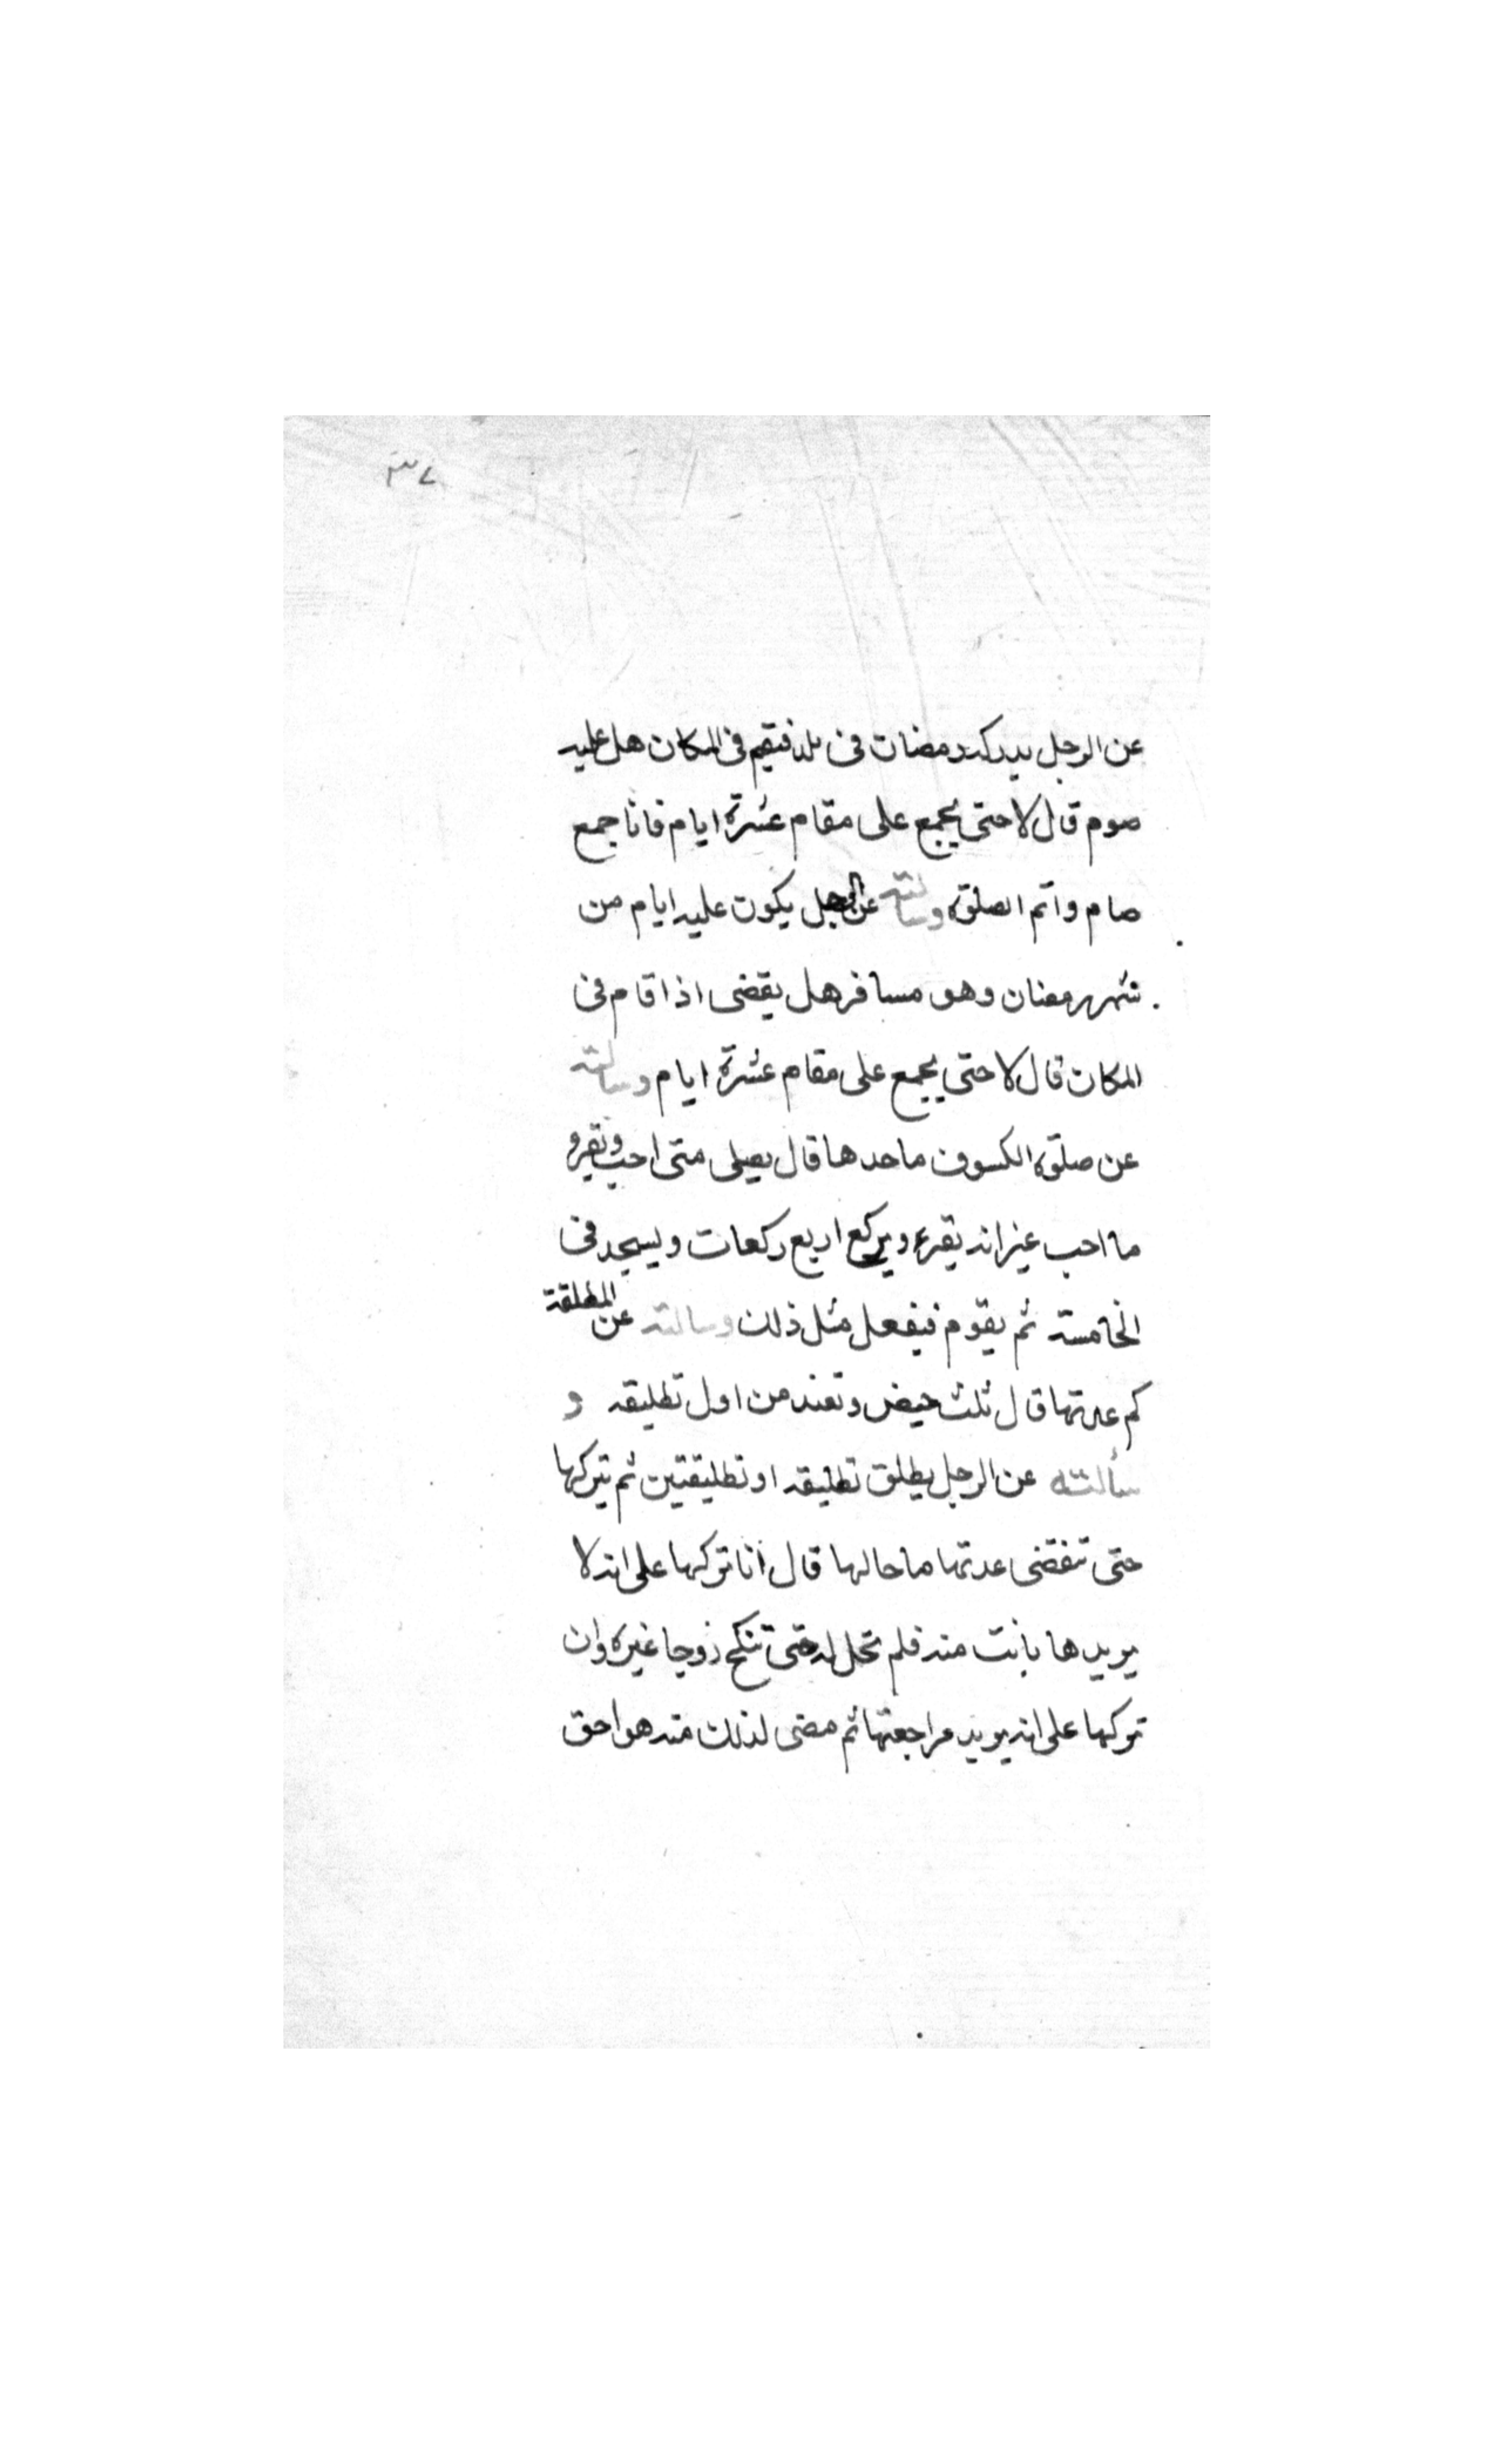 ٣٧
عن الرجل يدركه رمضان فى بلد فيقيم فى المكان هل عليه
صوم قال لا حتى يجمع على مقام عشرة ايام فاذا جمع
صام واتم الصلوة وسالته عن الرجل يكون عليه ايام من
شهر رمضان وهو مسافر هل يقضى اذا اقام فى
المكان قال لا حتى يجمع على مقام عشرة ايام وسالته
عن صلوة الكسوف ما حدها قال يصلى متى احب ويقرء
ما احب غير انه يقرء ويركع اربع ركعات ويسجد فى
الخامسة ثم يقوم فيفعل مثل ذلك وسالته عن المطلقة
كم عدتها قال ثلث حيض وتعتد من اول تطليقه و
سألته عن الرجل يطلق تطليقه او تطليقتين ثم يتركها
حتى تنقضى عدتها ما حالها قال اذا تركها على انه لا
يريدها بانت منه فلم تحل له حتى تنكح زوجا غيره وان
تركها على انه يريد مراجعتها ثم مضى لذلك منه هو احق